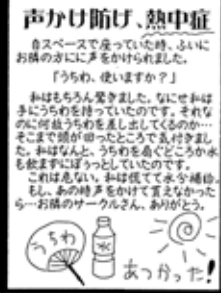 声かけ防げ、熱中症
自スペースで座っていた時、ふいに
お隣の方に声をかけられました。
「うちわ、使いますか？」
私はもちろん驚きました。なにせ私は
手にうちわを持っていたのです。それな
のに何故うちわを差し出してくるのか…
そこまで頭が回ったところで気付きまし
た。私はなんと、うちわを扇ぐどころか水
も飲まずにぼうっとしていたのです。
これは危ない。私は慌てて水分補給。
もし、あの時声をかけて貰えなかった
ら…お隣のサークルさん、ありがとう。
うちわ
水
あつかった!